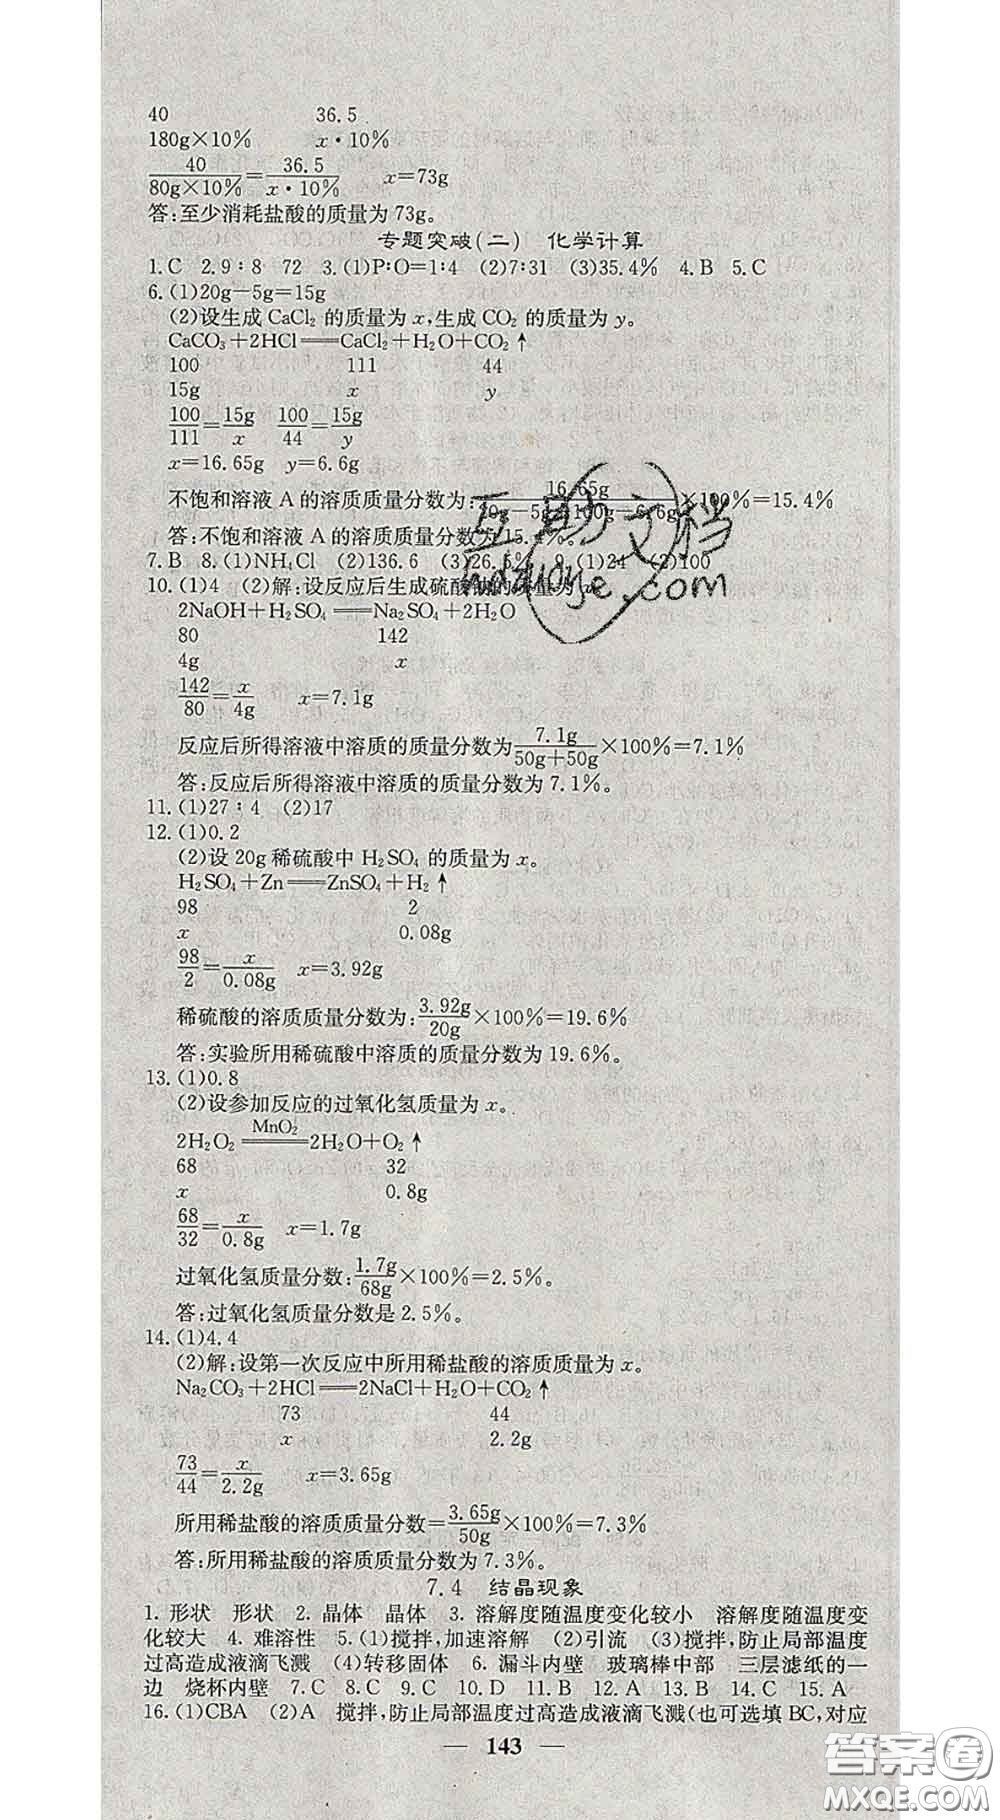 40 36.5
180g×10% x·10%
40/80g×10%=36.5/x·10% x=73g
答:至少消耗盐酸的质量为73g。
专题突破(二) 化学计算
1.C 2.9∶8 72 3.(1)P∶O=1∶4 (2)7∶31 (3)35.4% 4.B 5.C
6.(1)20g-5g=15g
(2)设生成CaCl₂的质量为x,生成CO₂的质量为y。
CaCO₃+2HCl══CaCl₂+H₂O+CO₂↑
100 111 44
15g x y
100/111=15g/x 100/44=15g/y
x=16.65g y=6.6g
不饱和溶液A的溶质质量分数为:16.65g/20g-5g+100g-6.6g×100%=15.4%
答:不饱和溶液A的溶质质量分数为15.4%。
7.B 8.(1)NH₄Cl (2)136.6 (3)26.5% 9.(1)24 (2)100
10.(1)4 (2)解:设反应后生成硫酸钠的质量为x。
2NaOH+H₂SO₄══Na₂SO₄+2H₂O
80 142
4g x
142/80=x/4g x=7.1g
反应后所得溶液中溶质的质量分数为7.1g/50g+50g×100%=7.1%
答:反应后所得溶液中溶质的质量分数为7.1%。
11.(1)27∶4 (2)17
12.(1)0.2
(2)设20g稀硫酸中H₂SO₄的质量为x。
H₂SO₄+Zn══ZnSO₄+H₂↑
98 2
x 0.08g
98/2=x/0.08g x=3.92g
稀硫酸的溶质质量分数为:3.92g/20g×100%=19.6%
答:实验所用稀硫酸中溶质的质量分数为19.6%。
13.(1)0.8
(2)设参加反应的过氧化氢质量为x。
2H₂O₂══MnO₂══2H₂O+O₂↑
68 32
x 0.8g
68/32=x/0.8g x=1.7g
过氧化氢质量分数:1.7g/68g×100%=2.5%。
答:过氧化氢质量分数是2.5%。
14.(1)4.4
(2)解:设第一次反应中所用稀盐酸的溶质质量为x。
Na₂CO₃+2HCl══2NaCl+H₂O+CO₂↑
73 44
x 2.2g
73/44=x/2.2g x=3.65g
所用稀盐酸的溶质质量分数=3.65g/50g×100%=7.3%
答:所用稀盐酸的溶质质量分数为7.3%。
7.4 结晶现象
1.形状 形状 2.晶体 晶体 3.溶解度随温度变化较小 溶解度随温度变
化较大 4.难溶性 5.(1)搅拌,加速溶解 (2)引流 (3)搅拌,防止局部温度
过高造成液滴飞溅 (4)转移固体 6.漏斗内壁 玻璃棒中部 三层滤纸的一
边 烧杯内壁 7.C 8.C 9.C 10.D 11.B 12.A 13.B 14.C 15.A
16.(1)CBA (2)A 搅拌,防止局部温度过高造成液滴飞溅(也可选填BC,对应
— 143 —
互助文档
hdzuoye.com
答案圈
MXQE.COM